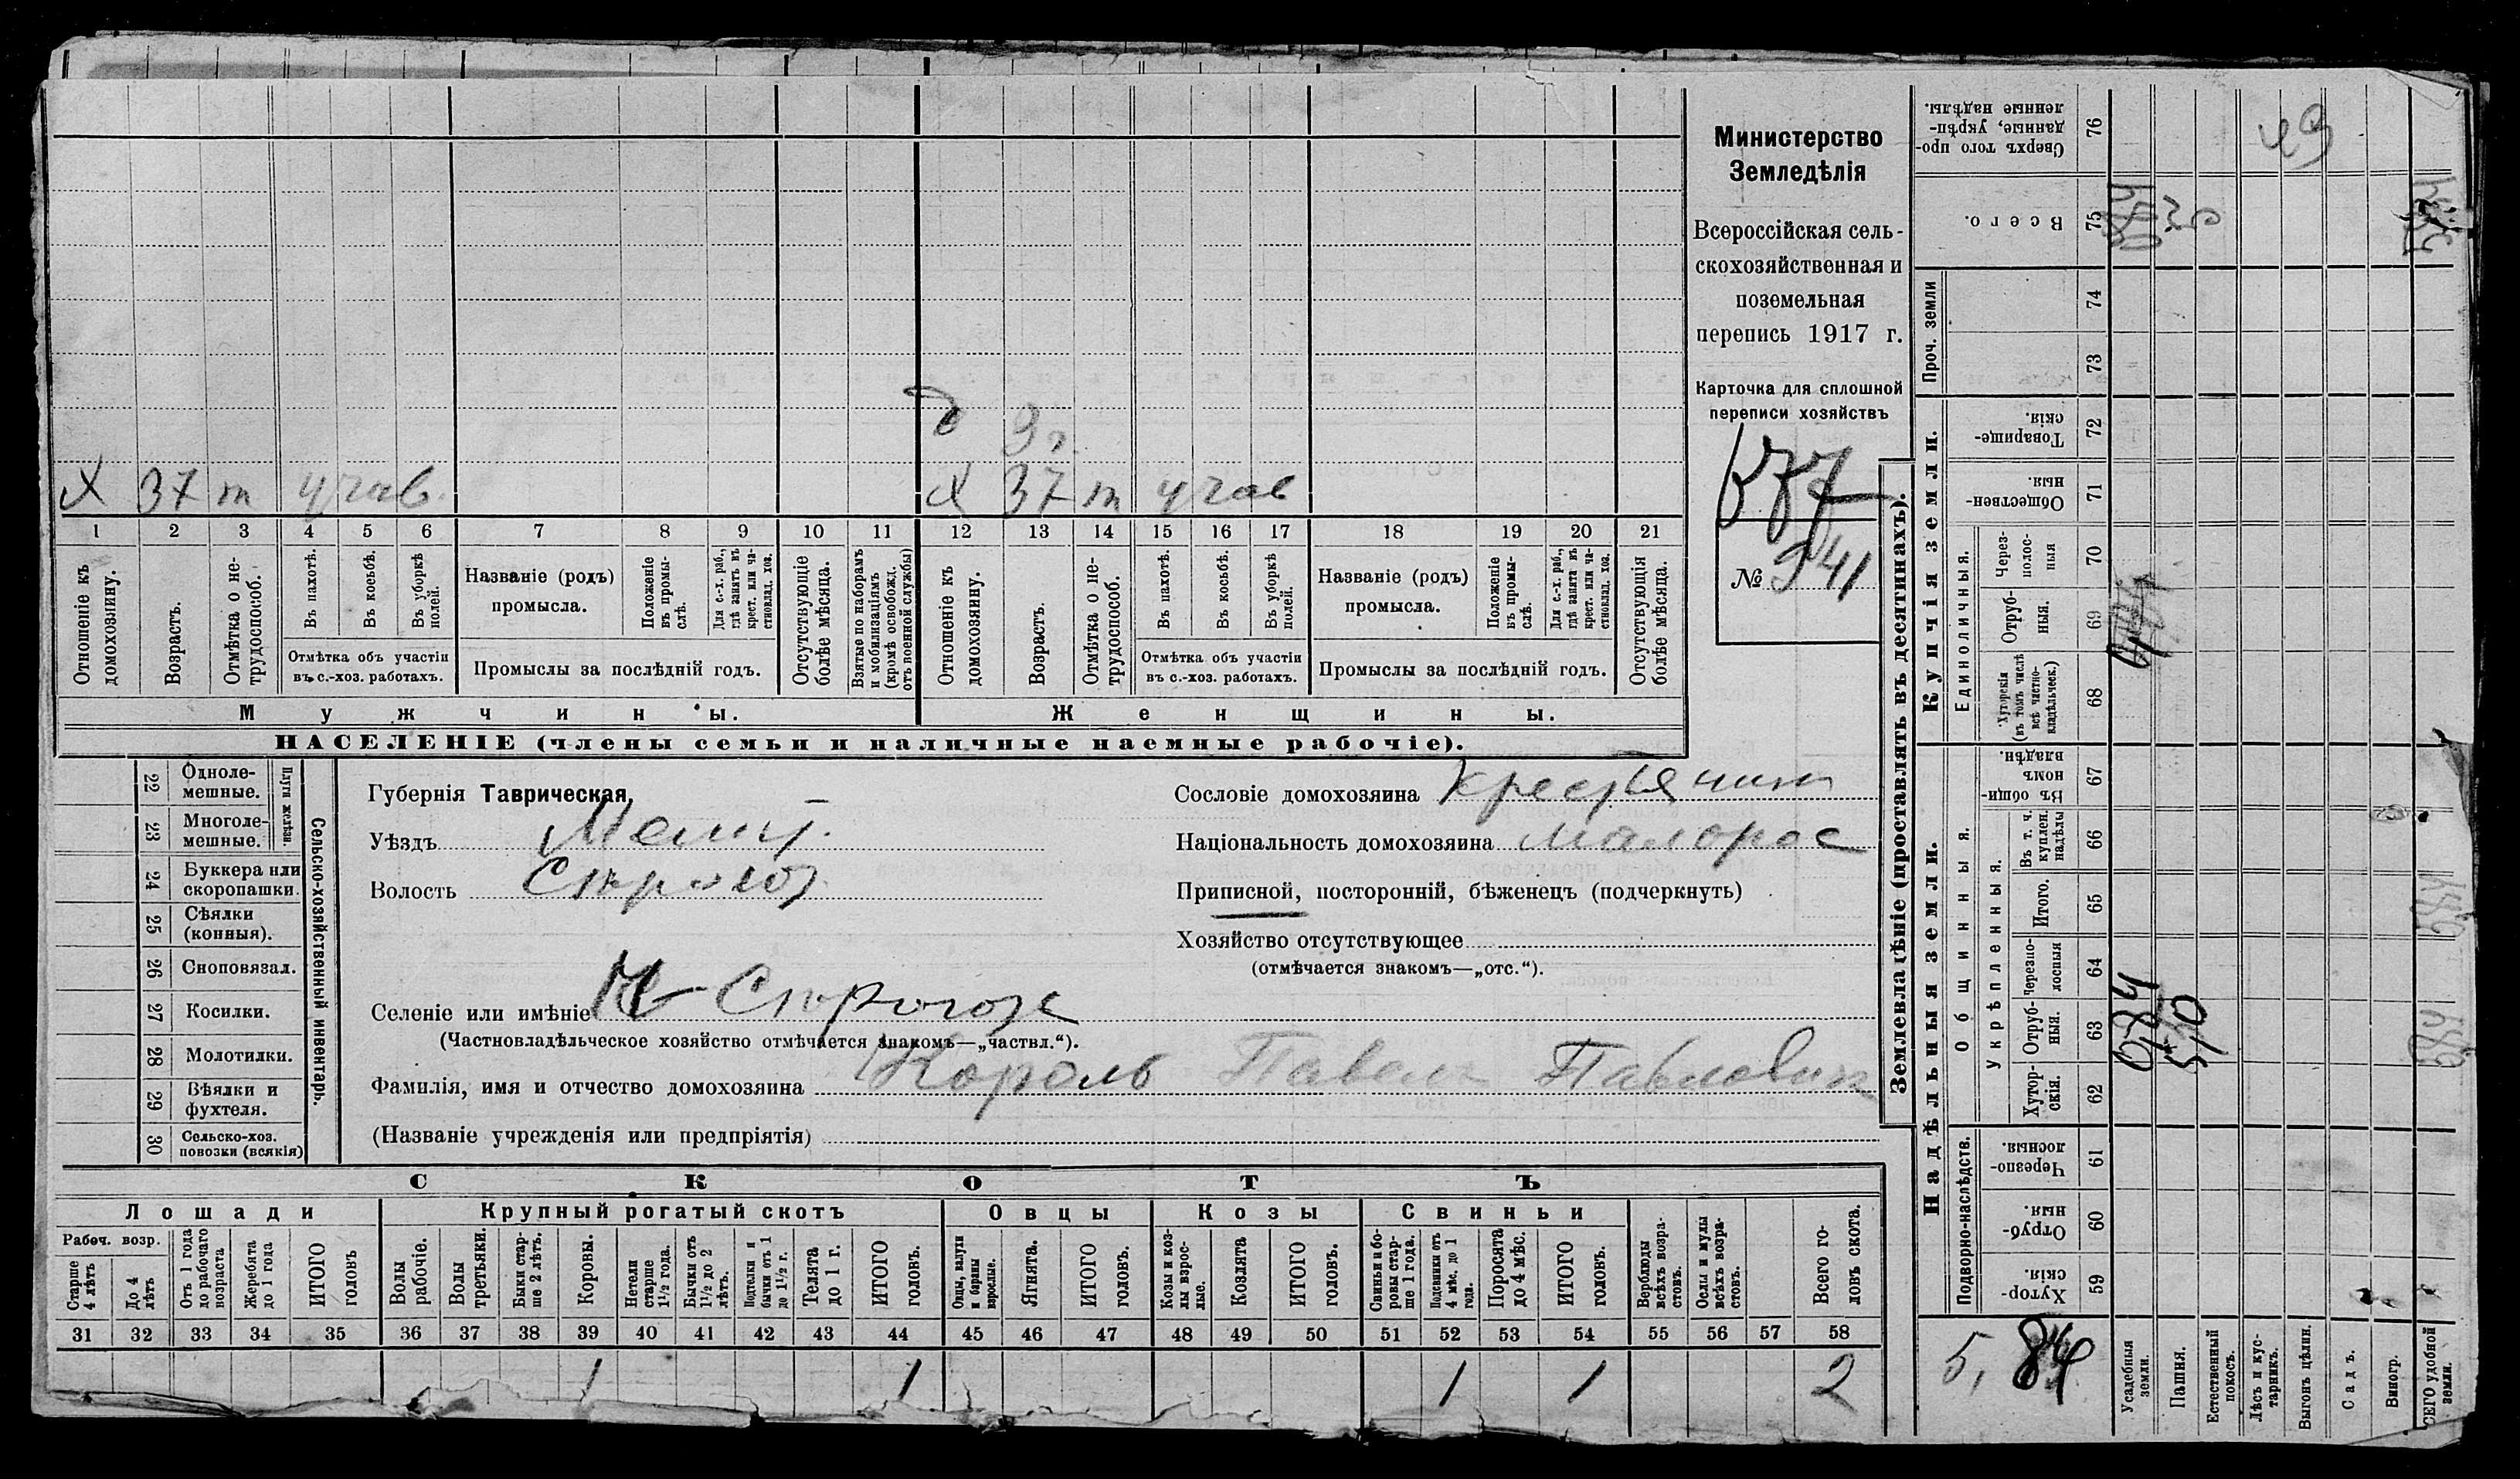 х 37 т учав.
д 3 г.
х 37 т учав
1 2 3 4 5 6 7 8 9 10 11 12 13 14 15 16 17 18 19 20 21
Отношеніе къ домохозяину.
Возрастъ.
Отмѣтка о не-
трудоспособ.
Въ пахотѣ.
Въ косьбѣ.
Въ уборкѣ полей.
Отмѣтка объ участіи
въ с.-хоз. работахъ.
Названіе (родъ)
промысла.
Положеніе въ промы-
слѣ.
Для с.-х. раб., гдѣ занятъ въ крест. или ча-
стновлад. хоз.
Промыслы за послѣдній годъ.
Отсутствующіе болѣе мѣсяца.
Взятые по наборамъ и мобилизаціямъ (кромѣ освобожд. отъ военной службы)
Отношеніе къ домохозяину.
Возрастъ.
Отмѣтка о не-
трудоспособ.
Въ пахотѣ.
Въ косьбѣ.
Въ уборкѣ полей.
Отмѣтка объ участіи
въ с.-хоз. работахъ.
Названіе (родъ)
промысла.
Положеніе въ промы-
слѣ.
Для с.-х. раб., гдѣ занята въ крест. или ча-
стновлад. хоз.
Промыслы за послѣдній годъ.
Отсутствующія болѣе мѣсяца.
Мужчины.
Женщины.
НАСЕЛЕНІЕ (члены семьи и наличные наемные рабочіе).
Министерство
Земледѣлія
Всероссійская сель-
скохозяйственная и
поземельная
перепись 1917 г.
Карточка для сплошной
переписи хозяйствъ
577
№ 341
Сельско-хозяйственный инвентарь.
Плуги желѣзн.
22 Одноле-
мешные.
23 Многоле-
мешные.
24 Буккера или
скоропашки.
25 Сѣялки
(конныя).
26 Сноповязал.
27 Косилки.
28 Молотилки.
29 Вѣялки и
фухтеля.
30 Сельско-хоз.
повозки (всякія)
Губернія Таврическая,
Уѣздъ Мелит.
Волость Строгоз
Селеніе или имѣніе Н-Строгоз
(Частновладѣльческое хозяйство отмѣчается знакомъ—„частвл.“).
Фамилія, имя и отчество домохозяина Король Павелъ Павлович
(Названіе учрежденія или предпріятія)
Сословіе домохозяина крестьянин
Національность домохозяина малорос
Приписной, посторонній, бѣженецъ (подчеркнуть)
Хозяйство отсутствующее
(отмѣчается знакомъ—„отс.“).
СКОТЪ
Лошади
Крупный рогатый скотъ
Овцы
Козы
Свиньи
Рабоч. возр.
Старше 4 лѣтъ
До 4 лѣтъ
Отъ 1 года до рабочаго возраста
Жеребята до 1 года
ИТОГО головъ
Волы рабочіе.
Волы третьяки.
Быки стар-
ше 2 лѣтъ.
Коровы.
Нетели старше 1½ года.
Бычки отъ 1½ до 2 лѣтъ.
Подтелки и бычки отъ 1 до 1½ г.
Телята до 1 г.
ИТОГО головъ.
Овцы, валухи и бараны взрослые.
Ягнята.
ИТОГО головъ.
Козы и коз-
лы взрос-
лые.
Козлята
ИТОГО головъ.
Свиньи и бо-
ровы стар-
ше 1 года.
Подсвинки отъ 4 мѣс. до 1 года.
Поросята до 4 мѣс.
ИТОГО головъ.
Верблюды всѣхъ возра-
стовъ.
Ослы и мулы всѣхъ возра-
стовъ.
Всего го-
ловъ скота.
31 32 33 34 35 36 37 38 39 40 41 42 43 44 45 46 47 48 49 50 51 52 53 54 55 56 57 58
1 1 1 1 2
Землевладѣніе (проставлять въ десятинахъ).
Купчія земли.
Надѣльныя земли.
Сверхъ того про-
данные, укрѣп-
ленные надѣлы.
76
Всего.
75
Проч. земли
74
73
Товарище-
скія.
72
Обществен-
ныя.
71
Единоличныя.
Через-
полос-
ныя
70
Отруб-
ныя.
69
Хуторскія (въ томъ числѣ всѣ частно-
владѣльческ.)
68
Общинныя.
Въ общи-
номъ
владѣн.
67
Укрѣпленныя.
Въ т. ч. куплен. надѣлы
66
Итого.
65
Черезпо-
лосныя
64
Отруб-
ныя.
63
Хутор-
скія.
62
Подворно-наслѣдств.
Черезпо-
лосныя.
61
Отруб-
ныя.
60
Хутор-
скія.
59
5,84
Усадебныя земли.
Пашня.
Естественный покосъ.
Лѣсъ и кус-
тарникъ.
Выгонъ цѣлин.
Садъ.
Виногр.
СЕГО удобной земли.